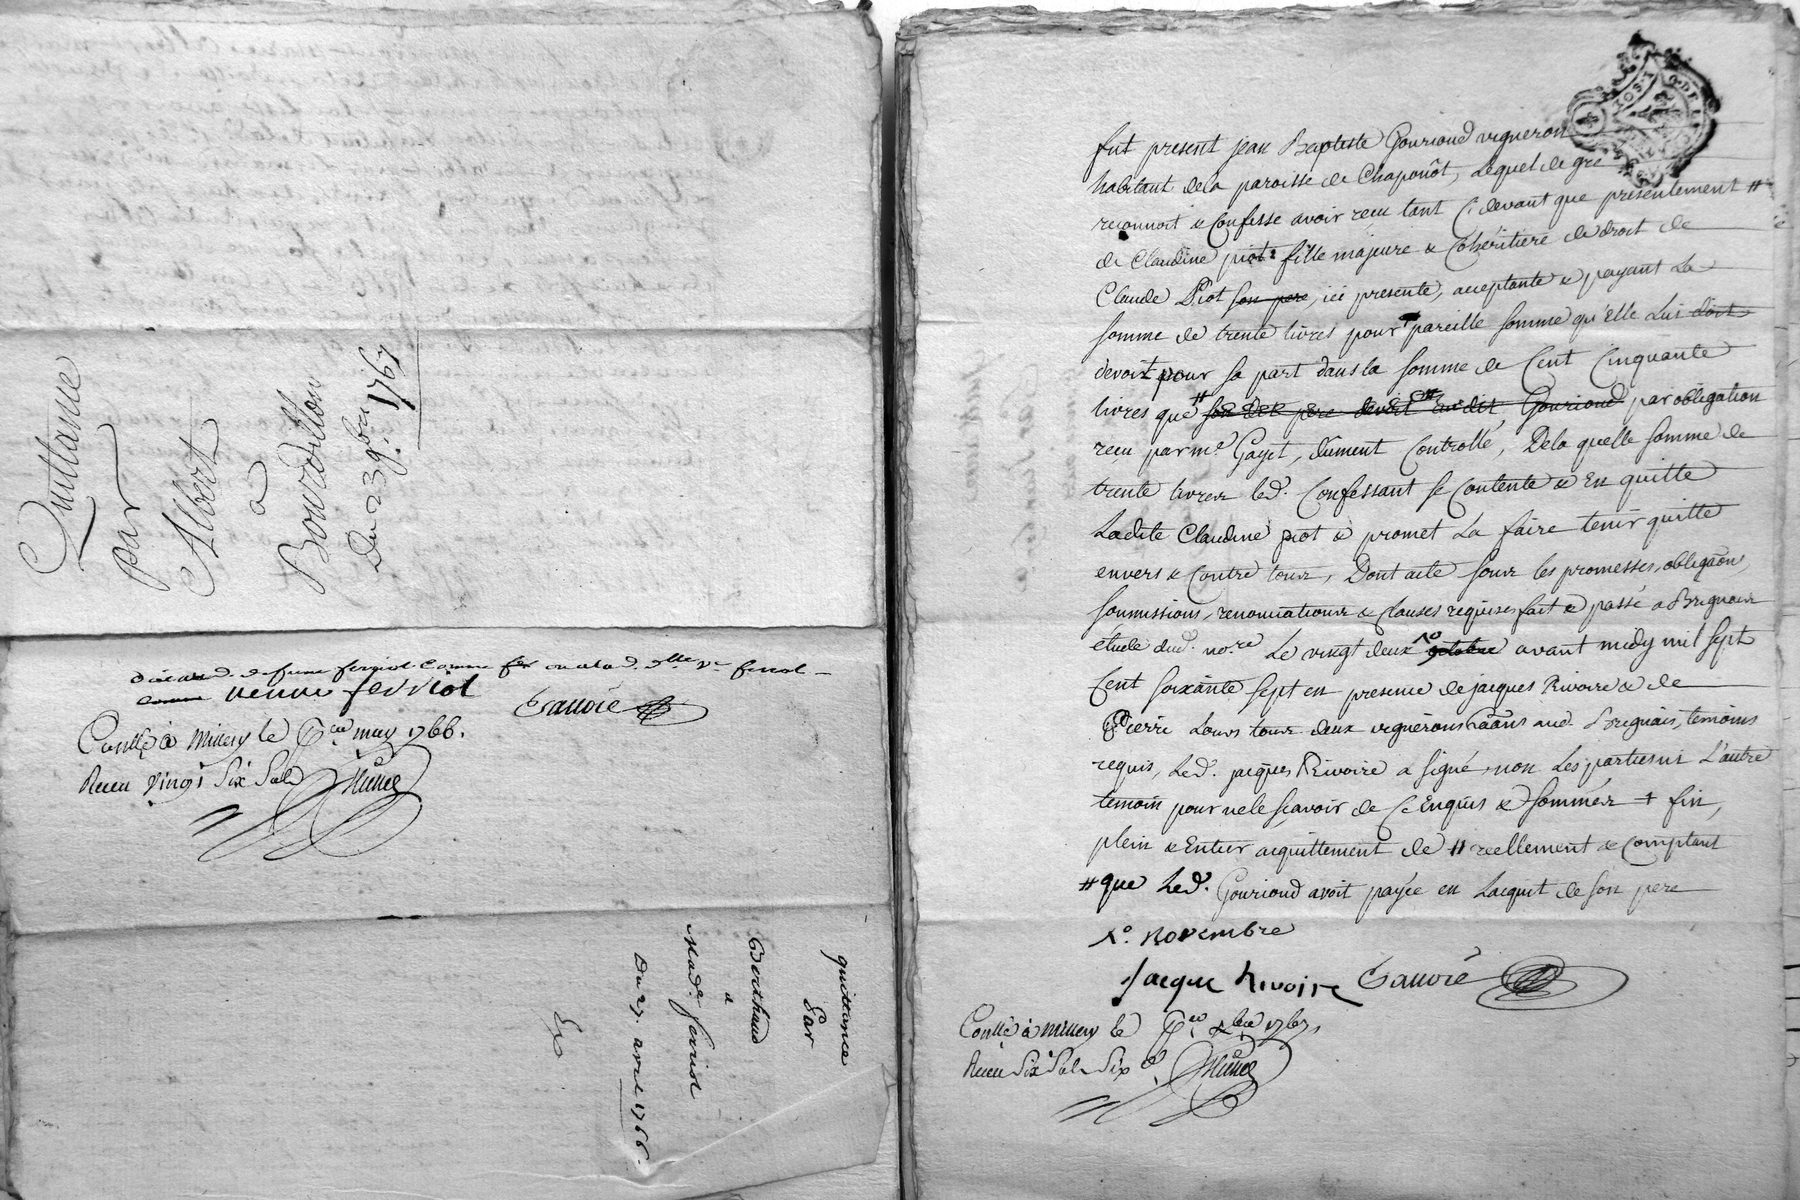 Quittance
Par
Albert
à
Bourdillon
Du 23 9bre 1767
veuve ferriol
Gauvié
Conllé à Millery le 6eu may 1766.
Receu vingt Six Sols
quittance
Par
Berthaud
a
Made. ferriol
Du 27. avril 1766.
Ex
fut present jean Baptiste Gourioud vigneron
habitant dela paroisse de Chaponôt, Lequel de gré
reconnoit & Confesse avoir reçu tant Cidevant que présentement #
de Claudine piot fille majeure & Cohéritiere de droit de
Claude Piot son pere, ici presente, acceptante & payant La
somme de trente livres pour pareille somme qu'elle Lui doit
devoit pour sa part dans la somme de Cent Cinquante
livres que # son dit pere devoit audit Gourioud par obligation
reçu par me. Gayet, dûment Controllé, Dela quelle somme de
trente livres led. Confessant se Contente & En quitte
Ladite Claudine piot & promet La faire tenir quitte
envers & Contre tous, Dont acte sous les promesses, obligãon,
soumissions, renonciations & clauses requises fait & passé a Brignais
étude dud. no.re Le vingt deux 1o octobre avant midy mil sept
Cent soixante sept en presence de jacques Rivoire & de
Pierre Louis tous deux vignerons hãans aud. Brignais, temoins
requis, Led. jacques Rivoire a signé non Les parties ni L'autre
temoin pour ne le sçavoir de Ce Enquis & sommés + fin,
plein & Entier acquittement de # reellement & Comptant
# que Led. Gourioud avoit payée en Lacquit de son pere
1o. novembre
Jacque Rivoire Gauvié
Conllé à Millery le 6eu Xbre 1767,
Receu Six Sols Six d